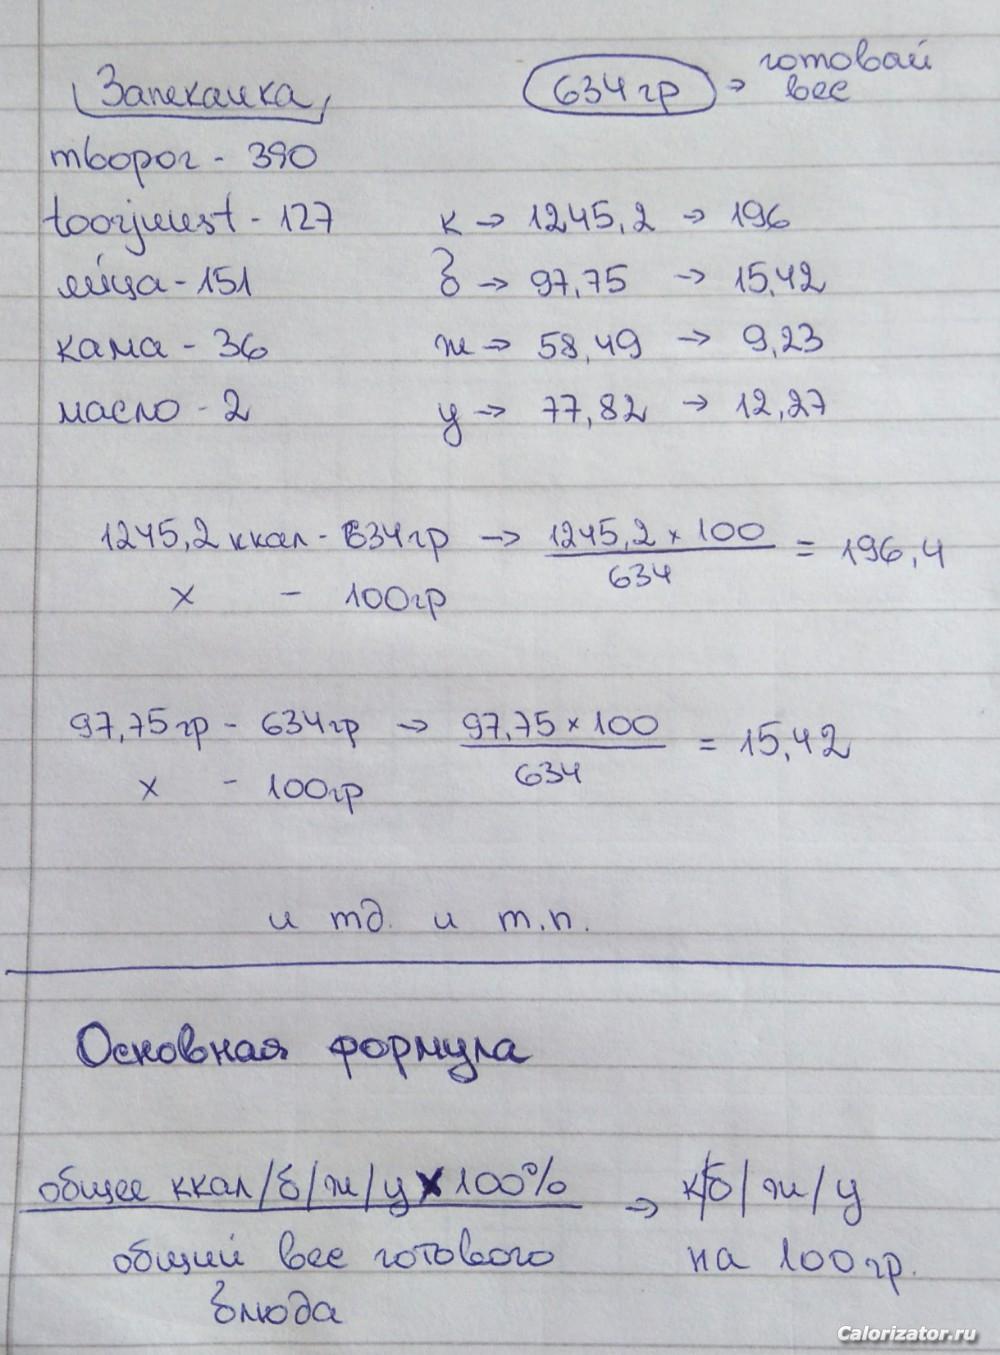 Запеканка
634 гр → готовай
вес
творог - 390
toorjuust - 127
яйца - 151
кама - 36
масло - 2
к → 1245,2 → 196
б → 97,75 → 15,42
ж → 58,49 → 9,23
у → 77,82 → 12,27
1245,2 ккал - 634 гр → 1245,2 × 100 / 634 = 196,4
х - 100 гр
97,75 гр - 634 гр → 97,75 × 100 / 634 = 15,42
х - 100 гр
и тд. и т.п.
Основная формула
общее ккал/б/ж/у × 100% → к/б/ж/у
общий вес готового на 100 гр.
блюда
Calorizator.ru